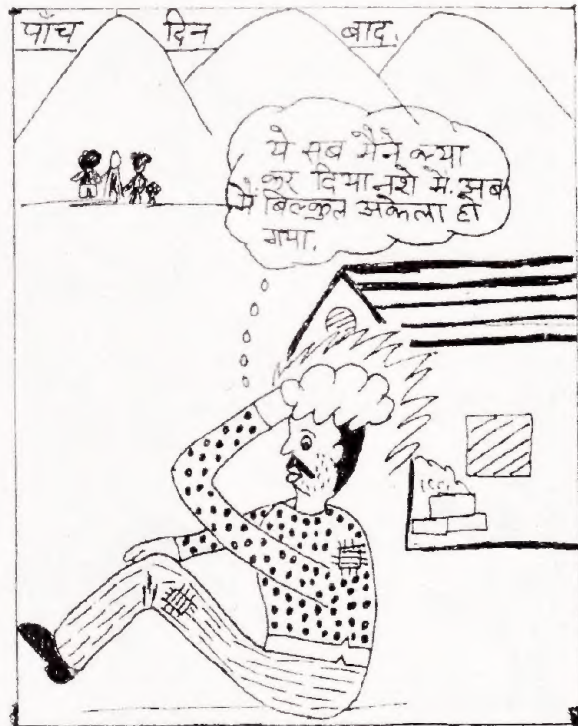 पाँच दिन बाद.
ये सब मैने क्या
कर दिया नशे मे. अब
मै बिल्कुल अकेला हो
गया.